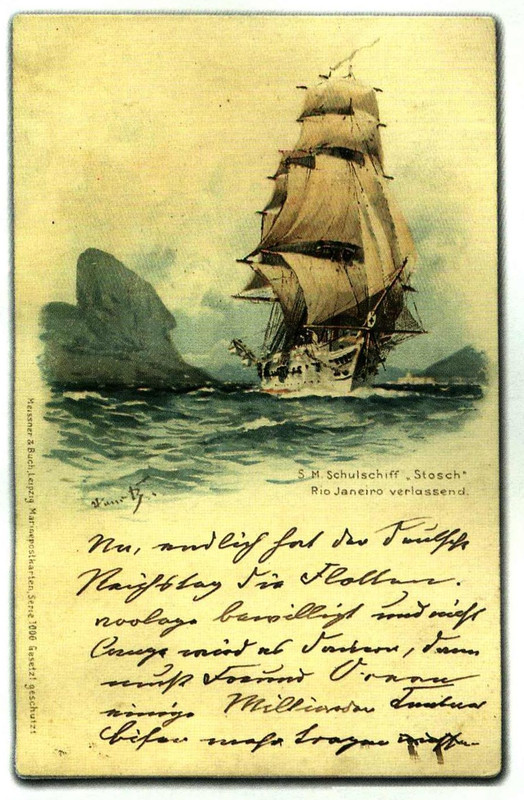 S. M. Schulschiff „Stosch“
Rio Janeiro verlassend.
Na, endlich hat der Deutsche
Reichstag die Flotten-
vorlage bewilligt und nicht
lange wird es dauern, dann
muß Freund Ocean
einige Milliarden
Eisen mehr tragen
Meissner & Buch, Leipzig, Marinepostkarten, Serie 1006 Gesetzl. geschützt